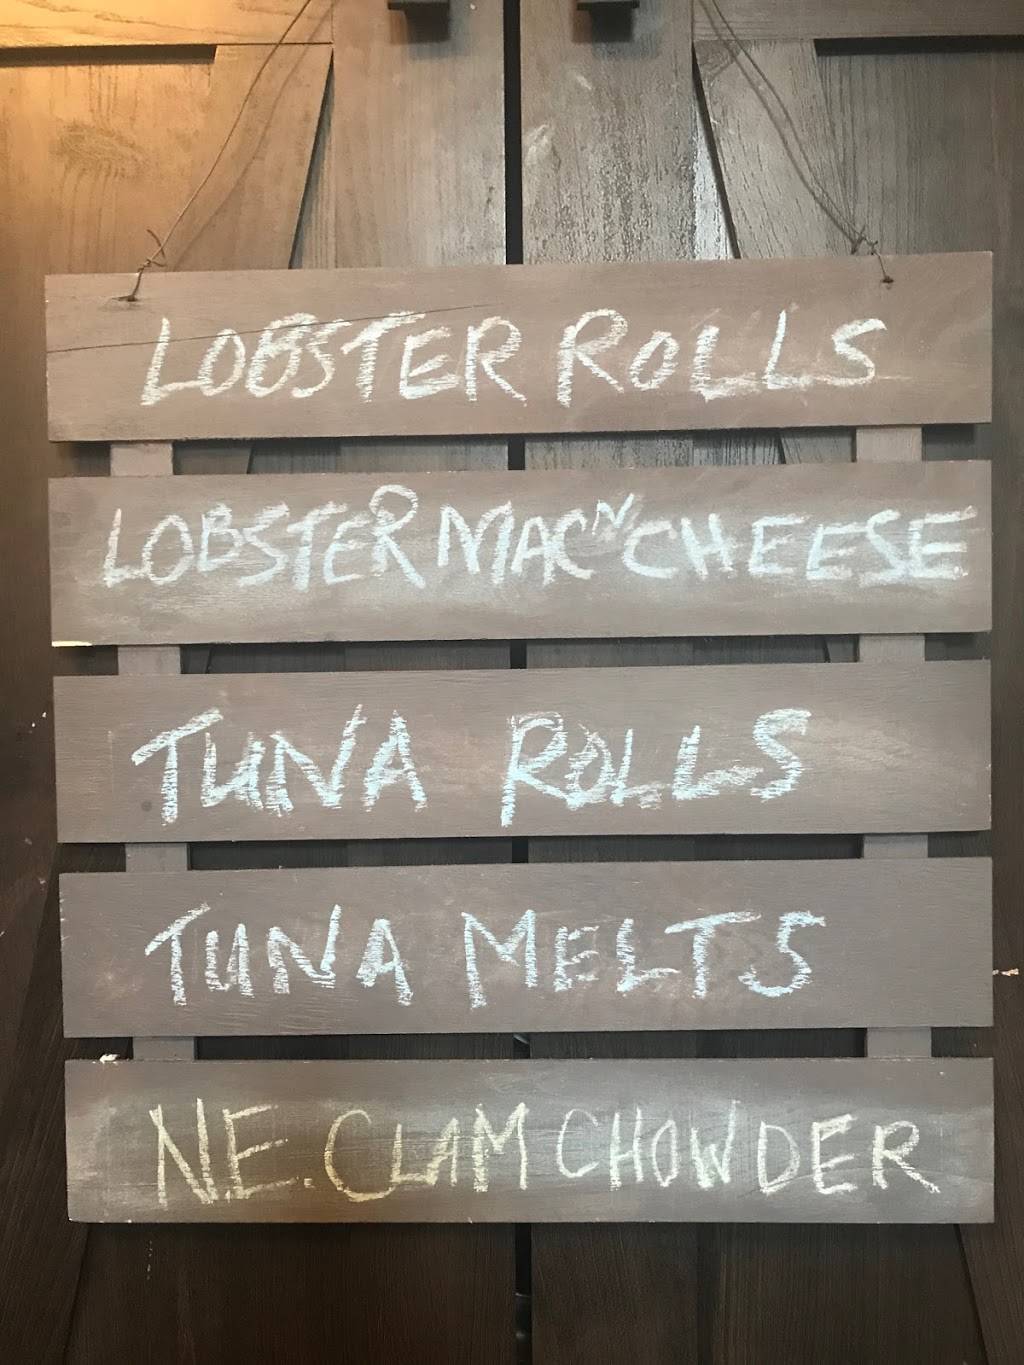 LOBSTER ROLLS
LOBSTER MAC N CHEESE
TUNA ROLLS
TUNA MELTS
N.E. CLAM CHOWDER